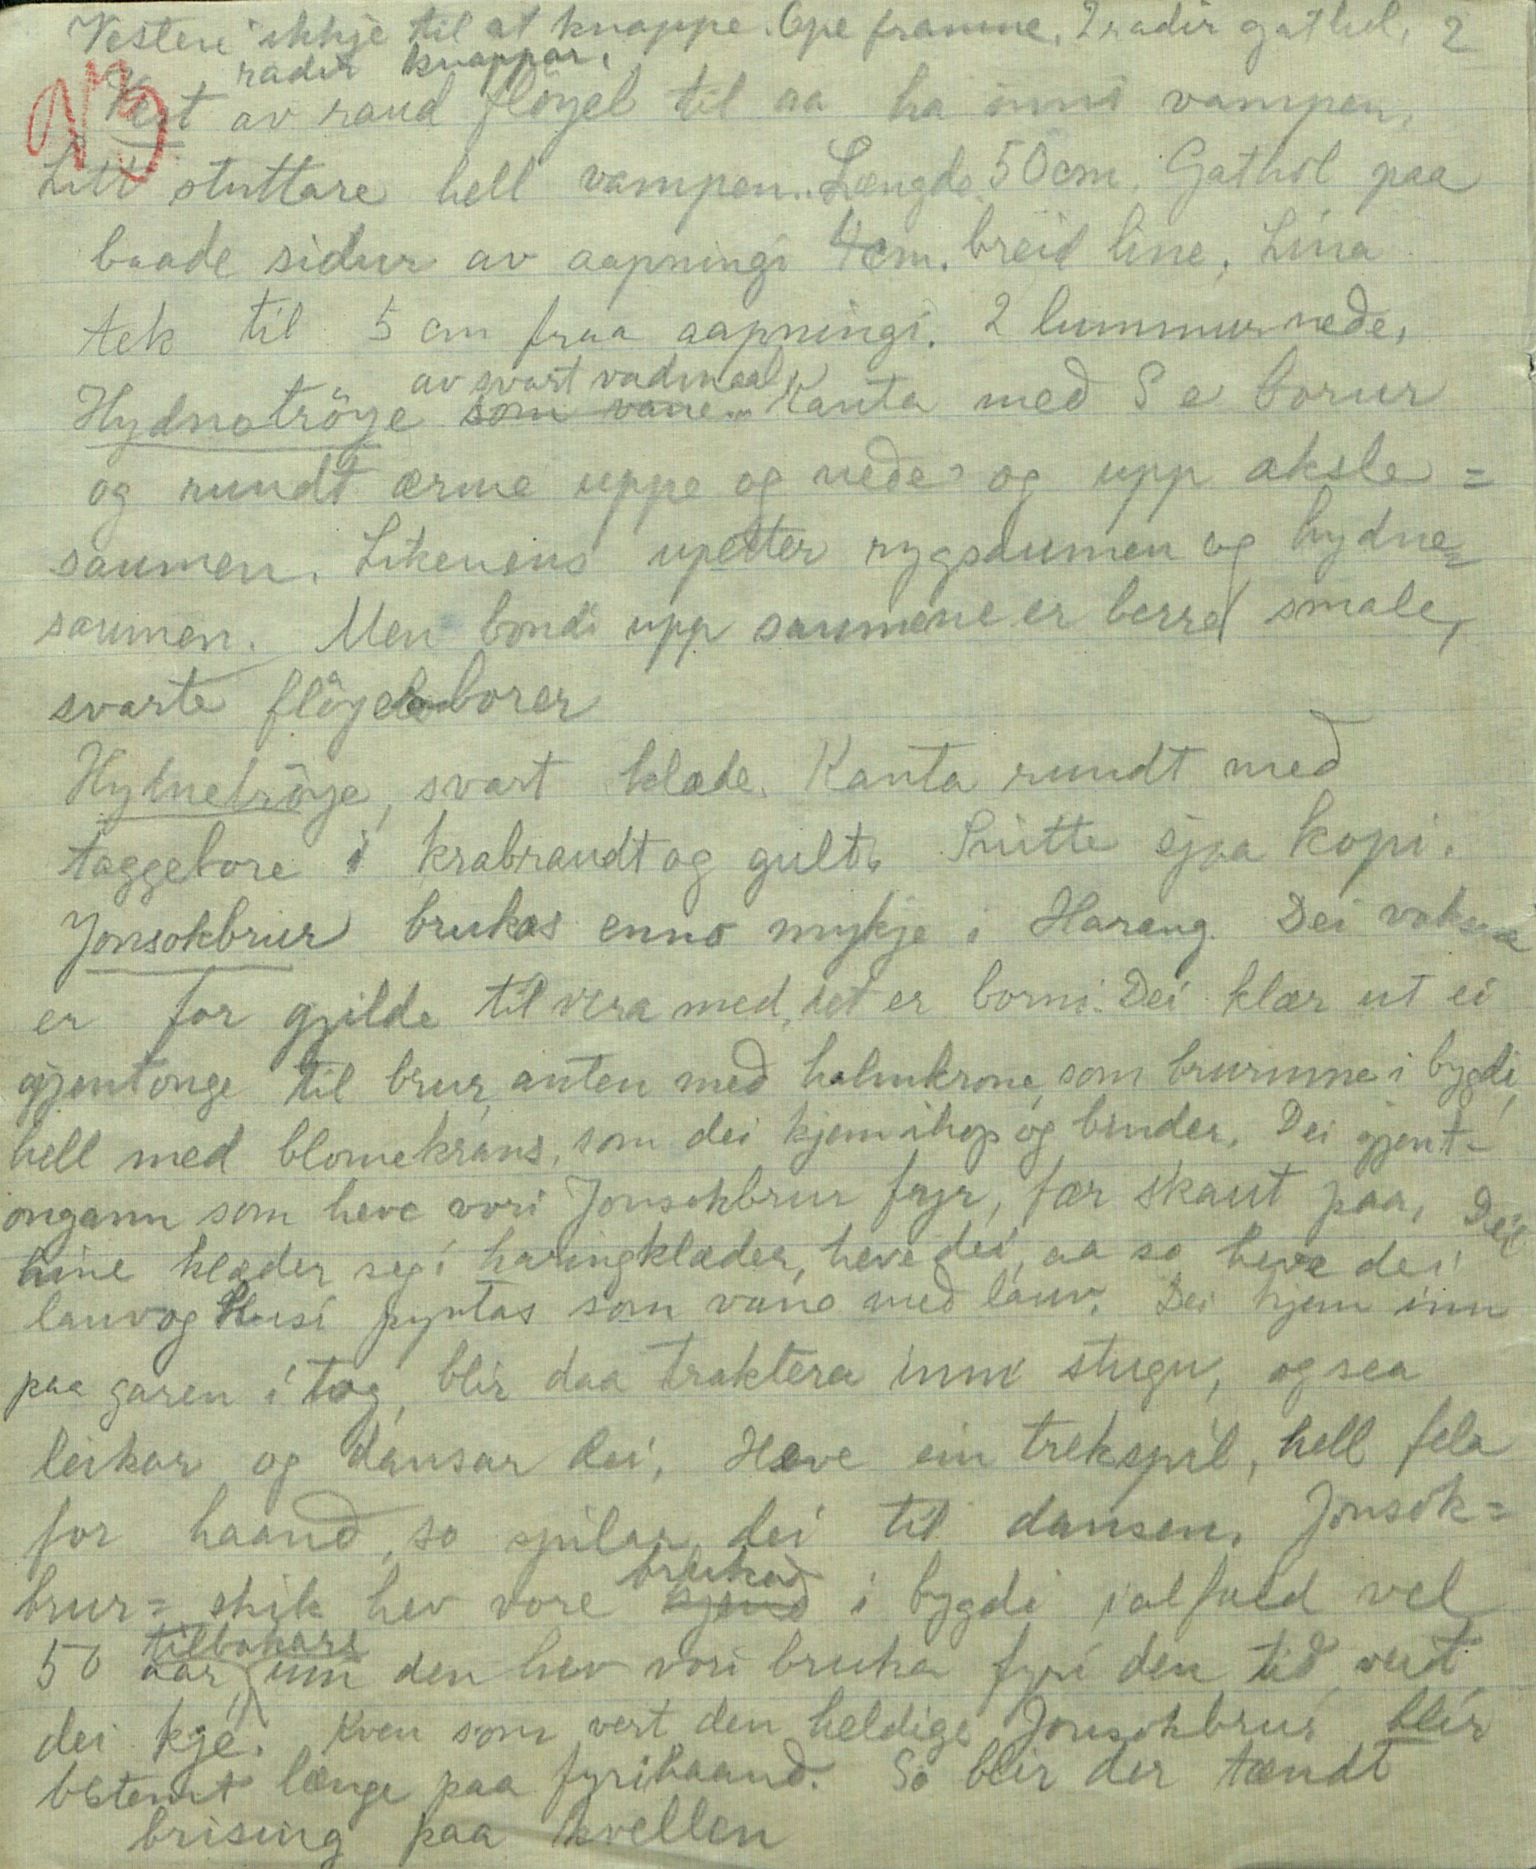 Vesten ikkje til at knappe. Ope framme. 2 radir gathol, 2
radir knappar.
93
Vest av raud fløyel til aa ha inni vampen,
Litt stuttare hell vampen. Længde 50cm. Gathol paa
baade sidur av aapningi 4cm. breid line, Lina
tek til 5 cm fraa aapningi. 2 lummur nede,
av svart vadmaal,
Hydnatröye som vane... Kanta med S e borur
og rundt ærme uppe og nede og upp aksle=
saumen. Likeeins upetter rygsaumen og hydne=
saumen. Men bondi upp saumene er berre smale,
svarte flöyelsborer
Hydnetröye, svart klæde. Kanta rundt med
taggebore i krabraudt og gult. Snitte sjaa kopi.
Jonsokbrur brukas enno mykje i Harang. Dei vaksne
er for gjilde til vera med, det er borni. Dei klær ut ei
gjentonge til brur, anten med halmkrone, som brurinne i bygdi,
hell med blomekrans, som dei kjem ihop og binder. Dei gjent-
ongann som heve vori Jonsokbrur fyr, fær skaut paa, Dei
hine klæder seg i haringklæder, heve dei, aa so heve dei
lauv og Husi pyntas som vano med lauv. Dei kjem inn
paa garen i tog, blir daa traktera inni stugu, og sea
leikar og dansar dei, Heve ein trekspil, hell fela
for haand, so spilar dei til dansen. Jonsok=
brur= skik hev vore kjend i bygdi ialfald vel
bruka
50 aar, um den hev vori bruka fyri den tid veit
tilbakars
dei kje. Kven som vert den heldige Jonsokbrur blir
bestemt længe paa fyrihaand. So blir der tændt
brising paa kvellen